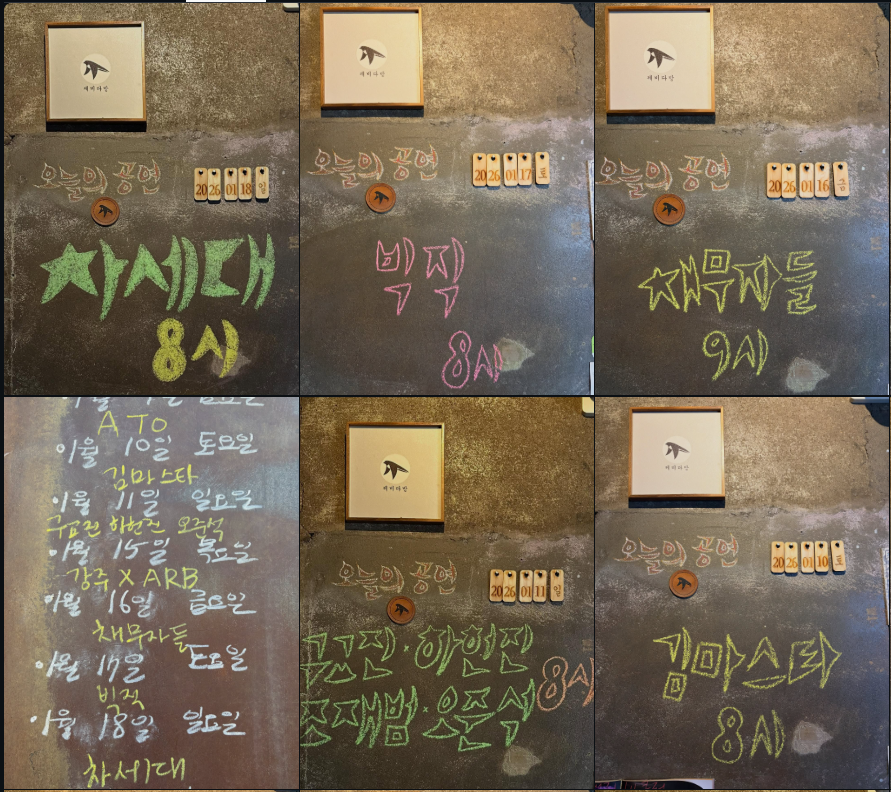 제비다방
오늘의 공연 20 26 01 18 일
차세대
8시
제비다방
오늘의 공연 20 26 01 17 토
빅직
8시
제비다방
오늘의 공연 20 26 01 16 금
채무자들
9시
A TO
1월 10일 토요일
김마스타
1월 11일 일요일
구교진 하헌진 오준석
1월 15일 목요일
강주 X ARB
1월 16일 금요일
채무자들
1월 17일 토요일
빅직
1월 18일 일요일
차세대
제비다방
오늘의 공연 20 26 01 11 일
구교진·하헌진
조재범·오준석 8시
제비다방
오늘의 공연 20 26 01 10 토
김마스타
8시